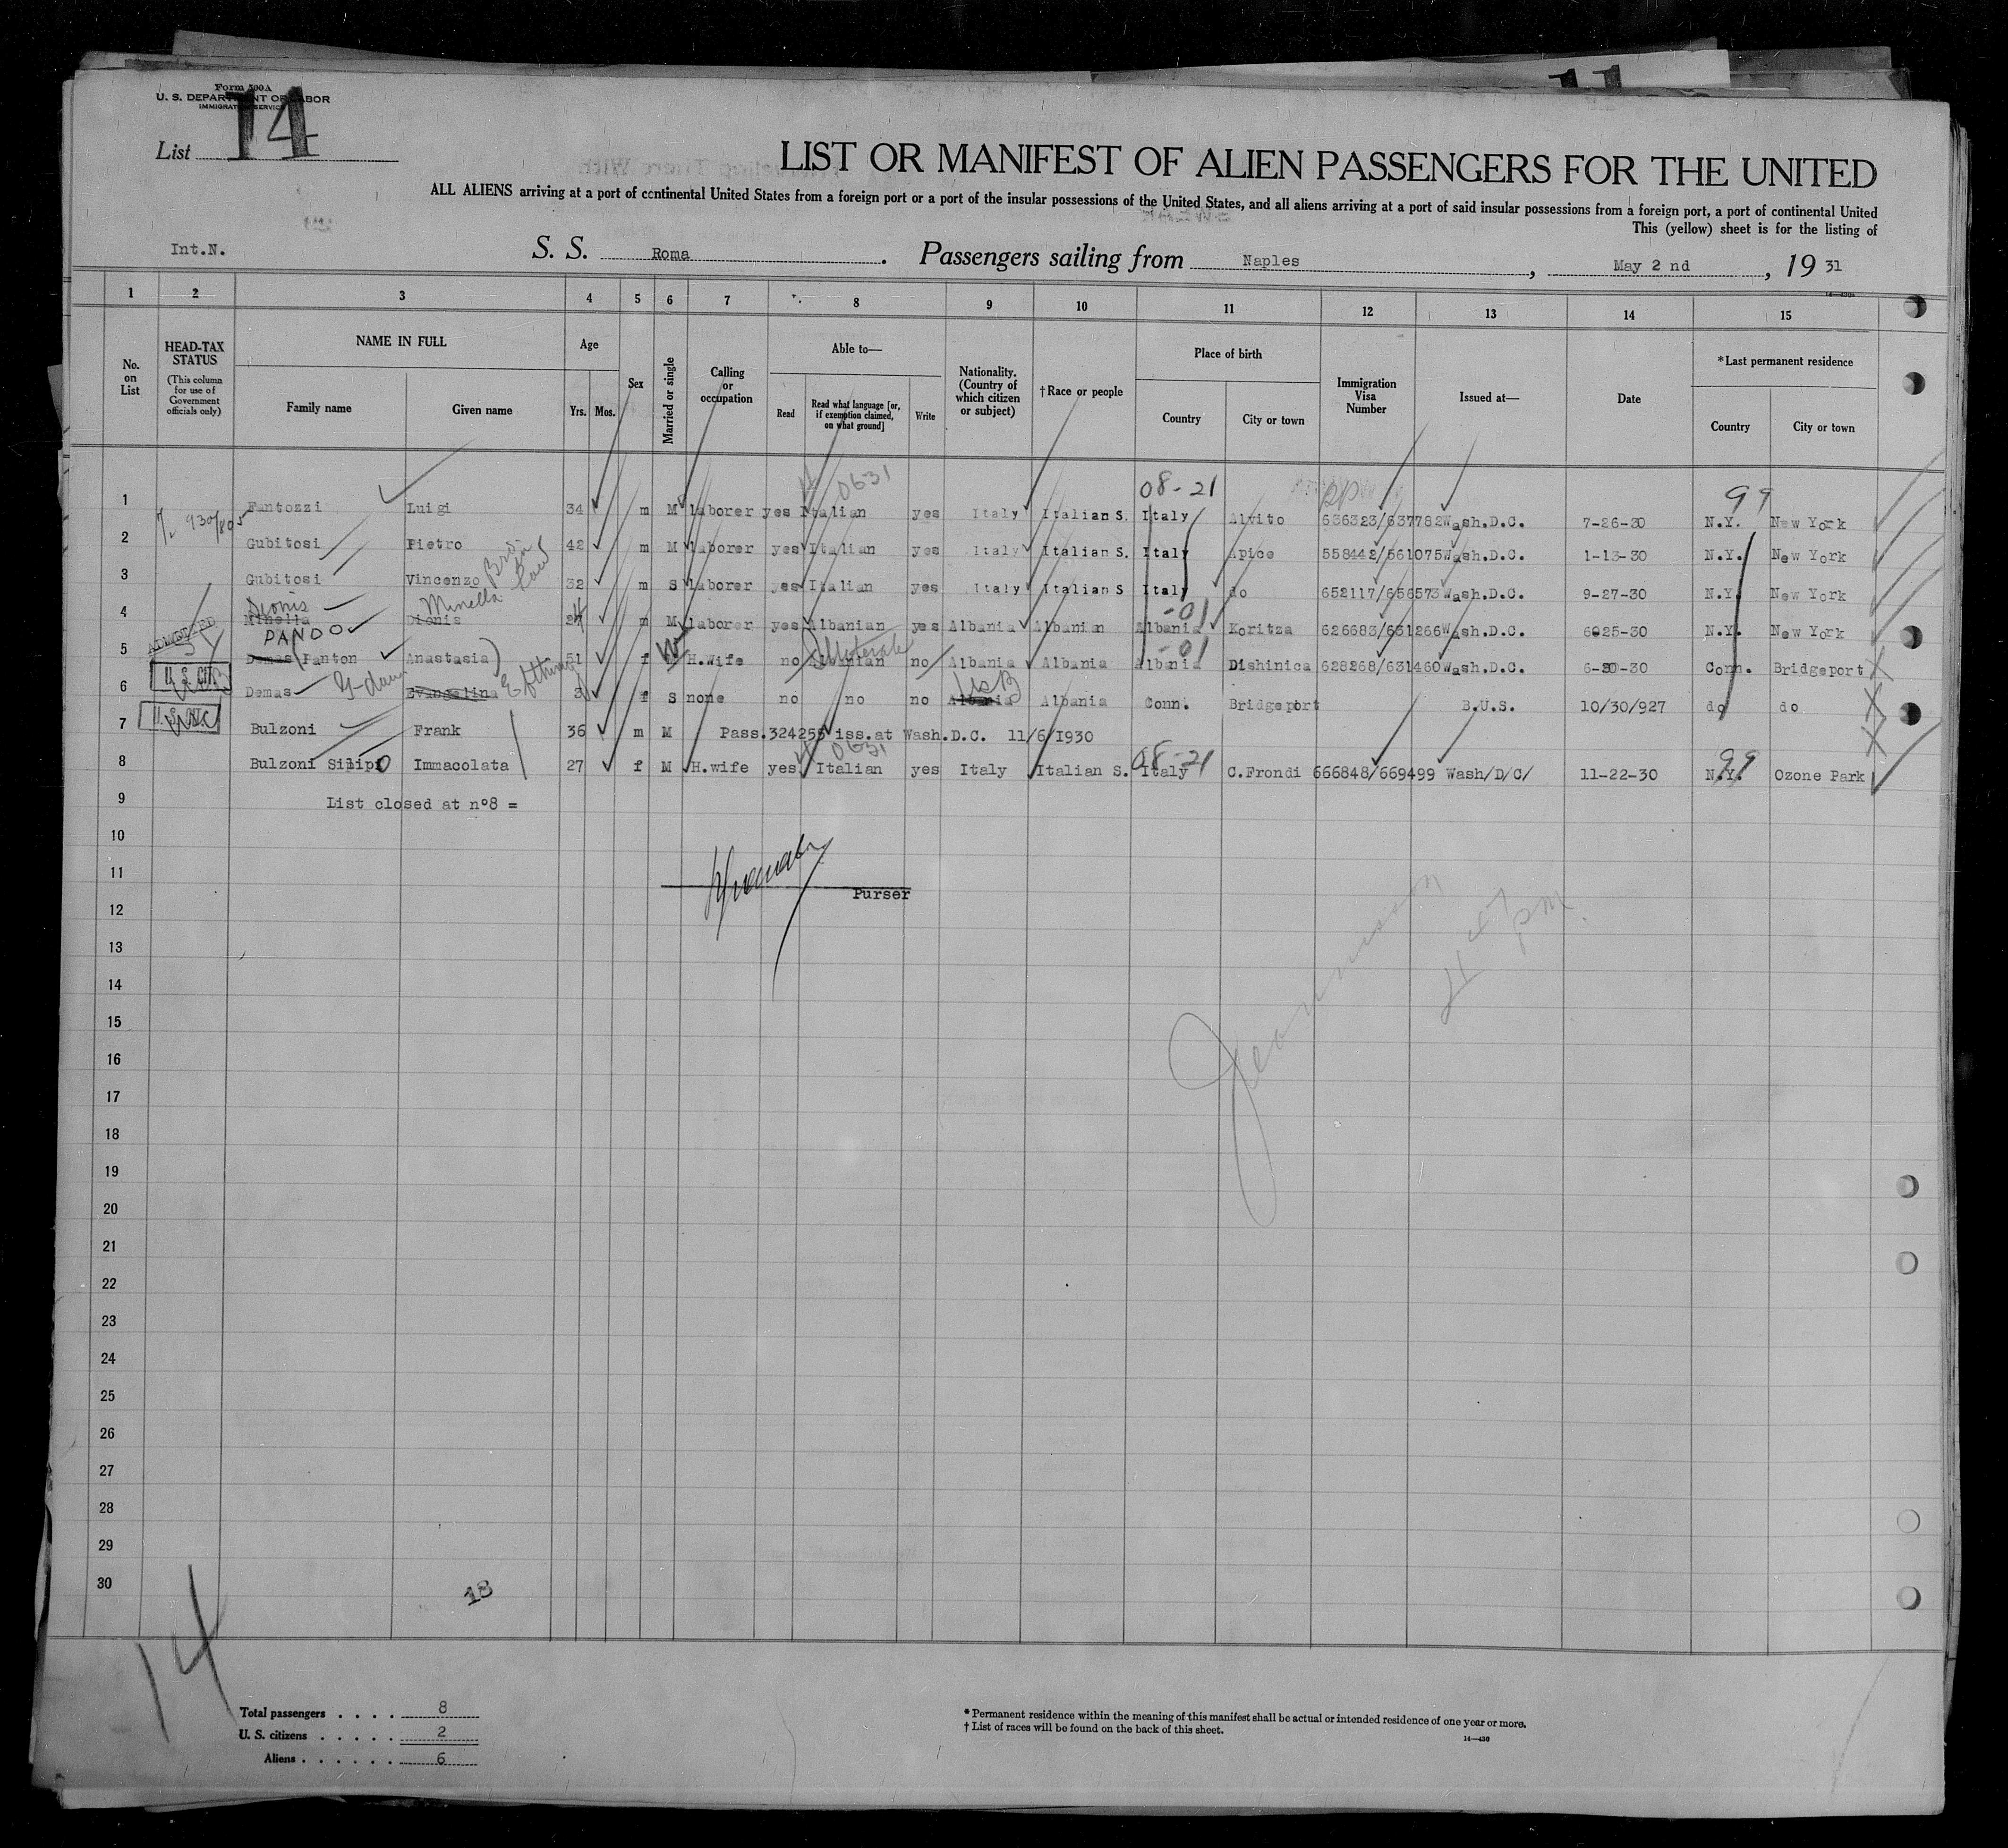 Form 500A
U. S. DEPARTMENT OF LABOR
IMMIGRATION SERVICE
List 14
LIST OR MANIFEST OF ALIEN PASSENGERS FOR THE UNITED
ALL ALIENS arriving at a port of continental United States from a foreign port or a port of the insular possessions of the United States, and all aliens arriving at a port of said insular possessions from a foreign port, a port of continental United
This (yellow) sheet is for the listing of
Int.N. S. S. Roma. Passengers sailing from Naples, May 2 nd, 19 31
1 2 3 4 5 6 7 8 9 10 11 12 13 14 15
No. on List
HEAD-TAX STATUS (This column for use of Government officials only)
NAME IN FULL Family name Given name
Age Yrs. Mos.
Sex
Married or single
Calling or occupation
Able to— Read Read what language [or, if exemption claimed, on what ground] Write
Nationality. (Country of which citizen or subject)
†Race or people
Place of birth Country City or town
Immigration Visa Number
Issued at—
Date
*Last permanent residence Country City or town
0631 08-21 99
1 Fantozzi Luigi 34 m M laborer yes Italian yes Italy Italian S. Italy Alvito 636323/637782 Wash.D.C. 7-26-30 N.Y. New York
2 Gubitosi Pietro 42 m M laborer yes Italian yes Italy Italian S. Italy Apice 558442/561075 Wash.D.C. 1-13-30 N.Y. New York
3 Gubitosi Vincenzo 32 m S laborer yes Italian yes Italy Italian S Italy do 652117/656573 Wash.D.C. 9-27-30 N.Y. New York
Dionis Minella -01
4 Minella Dionis 24 m M laborer yes Albanian yes Albania Albanian Albania Koritza 626683/631266 Wash.D.C. 6025-30 N.Y. New York
PANDO Illiterate -01
5 Demas (Panton Anastasia) 51 f W H.Wife no Albanian no Albania Albania Albania Dishinica 628268/631460 Wash.D.C. 6-20-30 Conn. Bridgeport
USB
6 Demas Evangelina 3 f S none no no no Albania Albania Conn. Bridgeport B.U.S. 10/30/927 do do
7 Bulzoni Frank 36 m M Pass.324255 iss.at Wash.D.C. 11/6/1930
0631 08-21 99
8 Bulzoni Silipo Immacolata 27 f M H.wife yes Italian yes Italy Italian S. Italy C.Frondi 666848/669499 Wash/D/C/ 11-22-30 N.Y. Ozone Park
9 List closed at nº8 =
10
11
Purser
12
13
14
15
16
17
18
19
20
21
22
23
24
25
26
27
28
29
30
13
14
Total passengers . . . . 8
U. S. citizens . . . . . 2
Aliens . . . . . . 6
* Permanent residence within the meaning of this manifest shall be actual or intended residence of one year or more.
† List of races will be found on the back of this sheet.
14—430